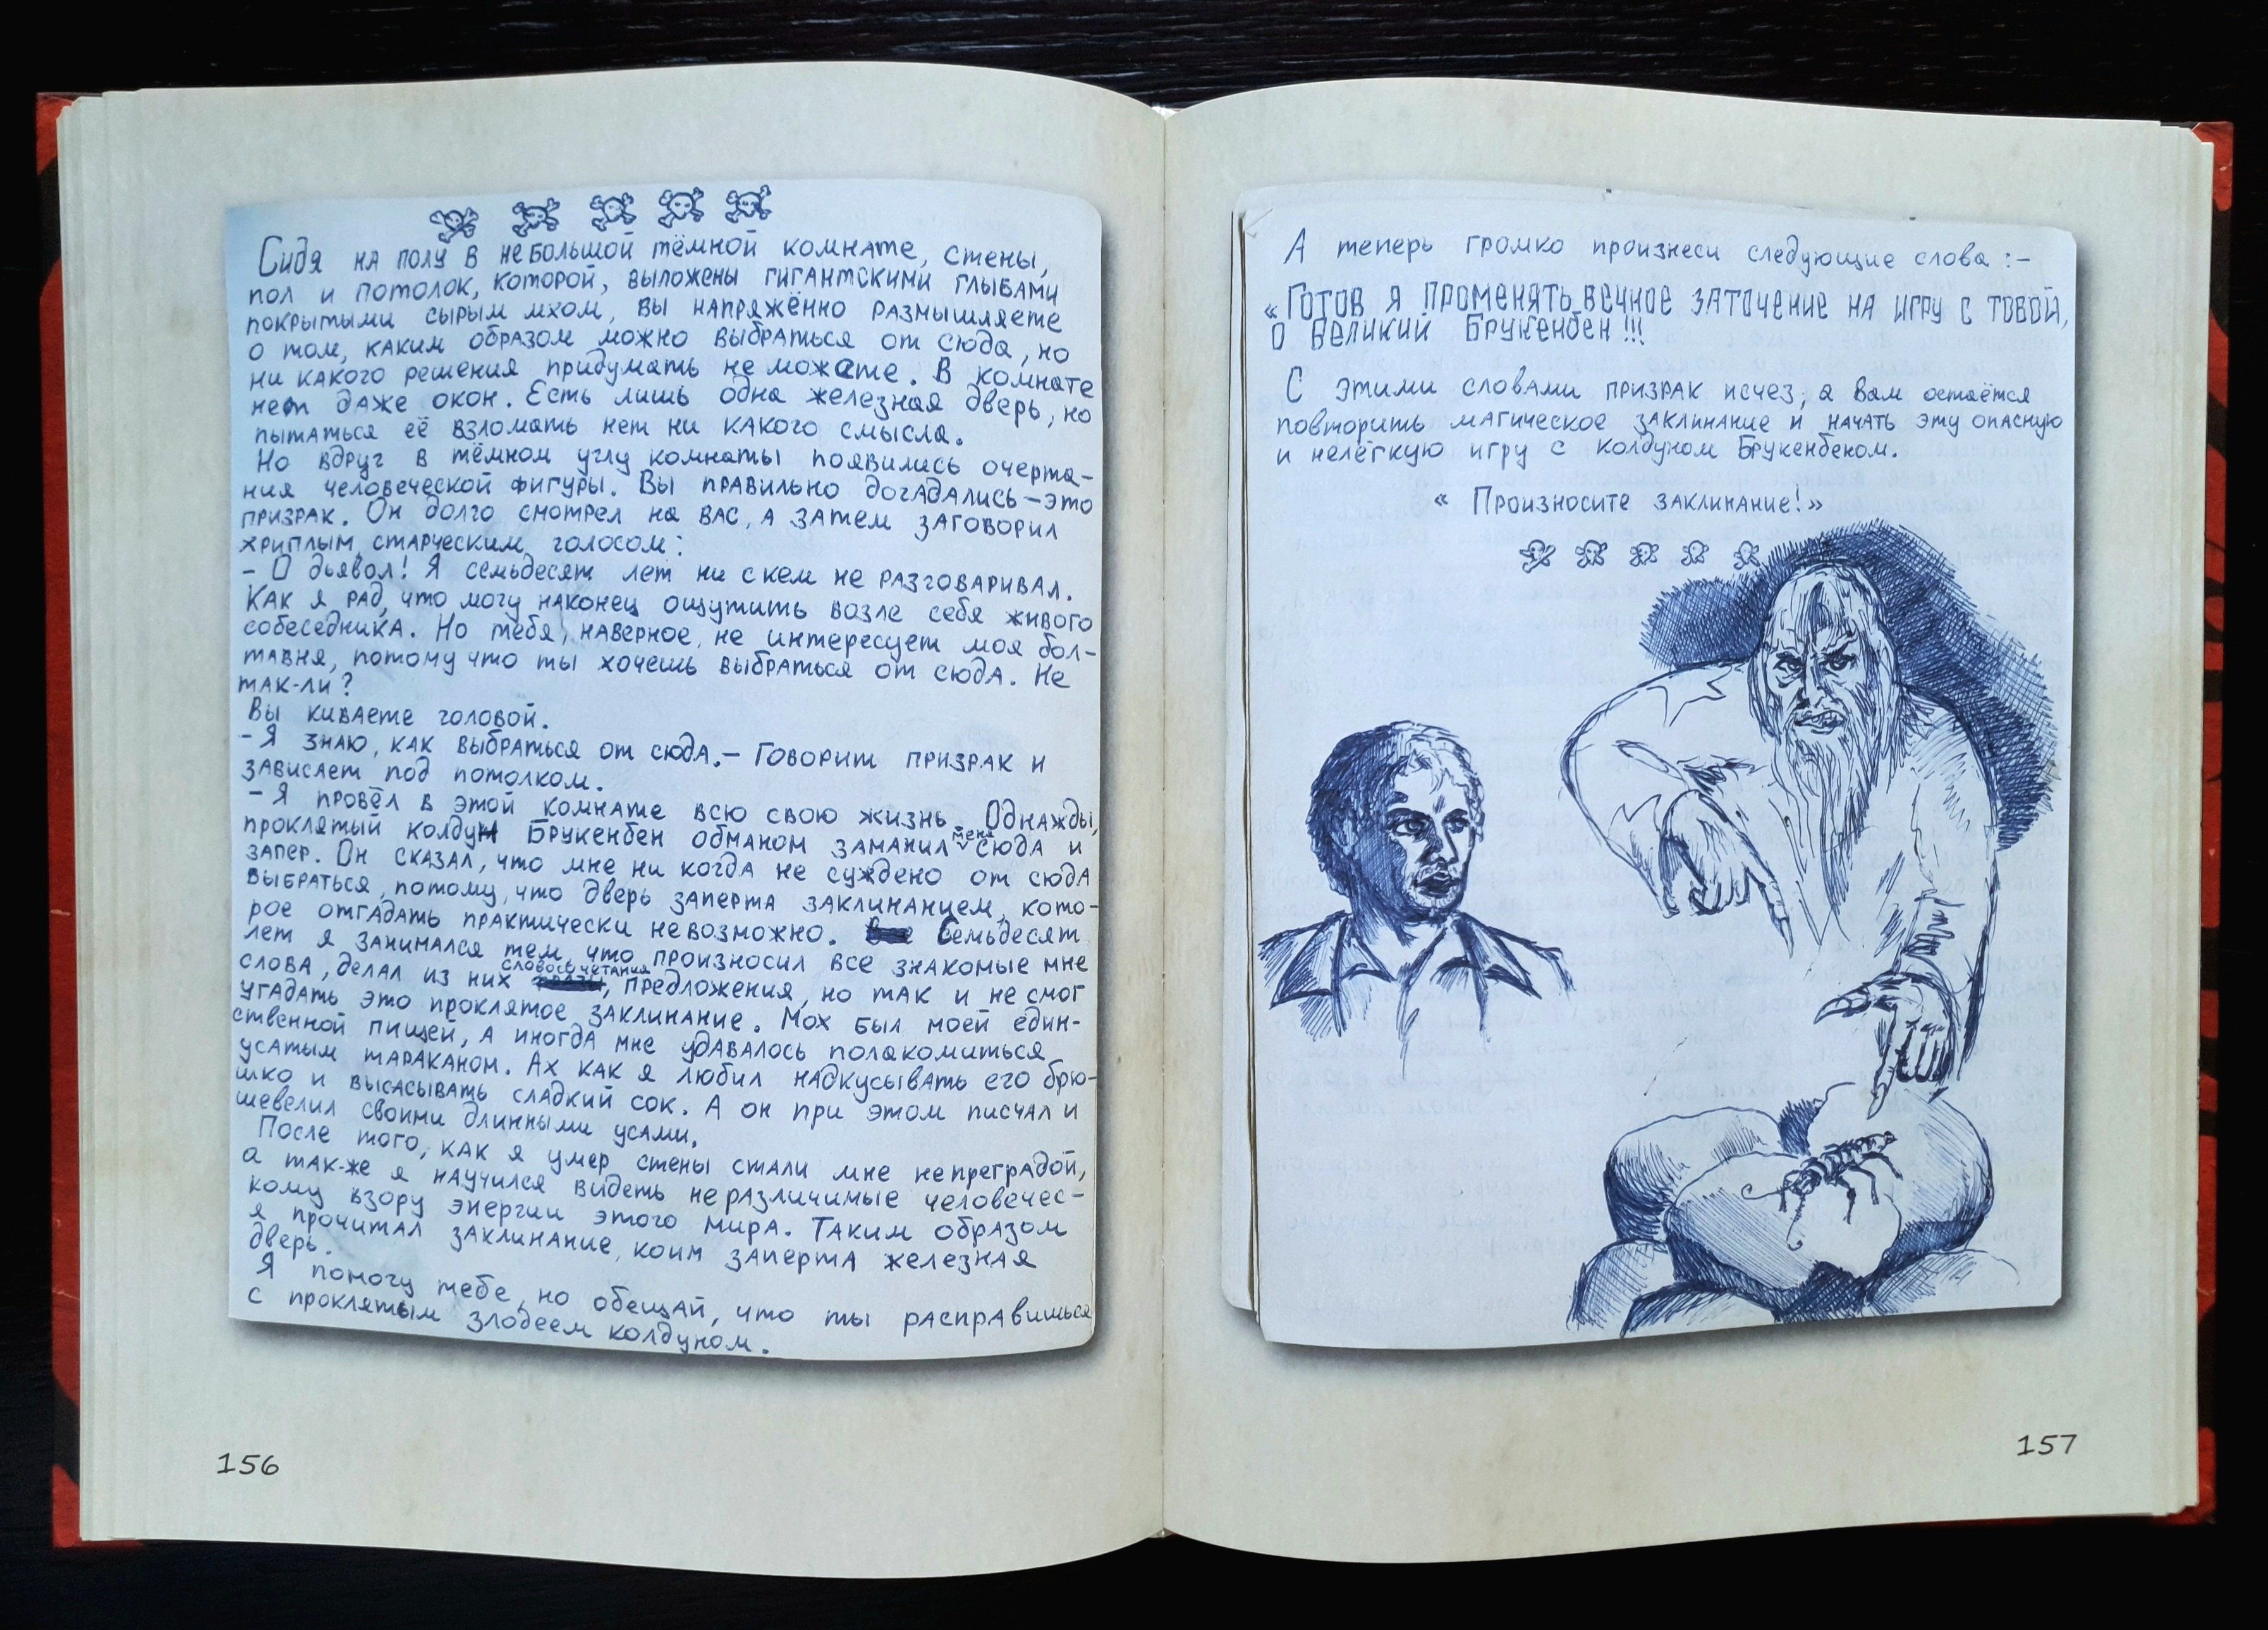 Сидя на полу в небольшой тёмной комнате, стены,
пол и потолок, которой, выложены гигантскими глыбами
покрытыми сырым мхом, вы напряжённо размышляете
о том, каким образом можно выбраться от сюда, но
ни какого решения придумать не можете. В комнате
нет даже окон. Есть лишь одна железная дверь, но
пытаться её взломать нет ни какого смысла.
Но вдруг в тёмном углу комнаты появились очерта-
ния человеческой фигуры. Вы правильно догадались – это
призрак. Он долго смотрел на вас, а затем заговорил
хриплым старческим голосом:
- О дьявол! Я семьдесят лет ни с кем не разговаривал.
Как я рад, что могу наконец ощутить возле себя живого
собеседника. Но тебя, наверное, не интересует моя бол-
тавня, потому что ты хочешь выбраться от сюда. Не
так-ли?
Вы киваете головой.
- Я знаю, как выбраться от сюда. – Говорит призрак и
зависает под потолком.
- Я провёл в этой комнате всю свою жизнь. Однажды,
проклятый колдун Брукенбен обманом заманил меня сюда и
запер. Он сказал, что мне ни когда не суждено от сюда
выбраться, потому, что дверь заперта заклинанием, кото-
рое отгадать практически невозможно. Семьдесят
лет я занимался тем, что произносил все знакомые мне
слова, делал из них словосочетания, предложения, но так и не смог
угадать это проклятое заклинание. Мох был моей един-
ственной пищей, а иногда мне удавалось полакомиться
усатым тараканом. Ах как я любил надкусывать его брю-
шко и высасывать сладкий сок. А он при этом писчал и
шевелил своими длинными усами.
После того, как я умер стены стали мне непреградой,
а так-же я научился видеть неразличимые человечес-
кому взору энергии этого мира. Таким образом
я прочитал заклинание, коим заперта железная
дверь.
Я помогу тебе, но обещай, что ты расправишься
с проклятым злодеем колдуном.
156
А теперь громко произнеси следующие слова :-
«Готов я променять вечное заточение на игру с тобой,
о великий Брукенбен!!!
С этими словами призрак исчез, а вам остаётся
повторить магическое заклинание и начать эту опасную
и нелёгкую игру с колдуном Брукенбеном.
« Произносите заклинание!»
157